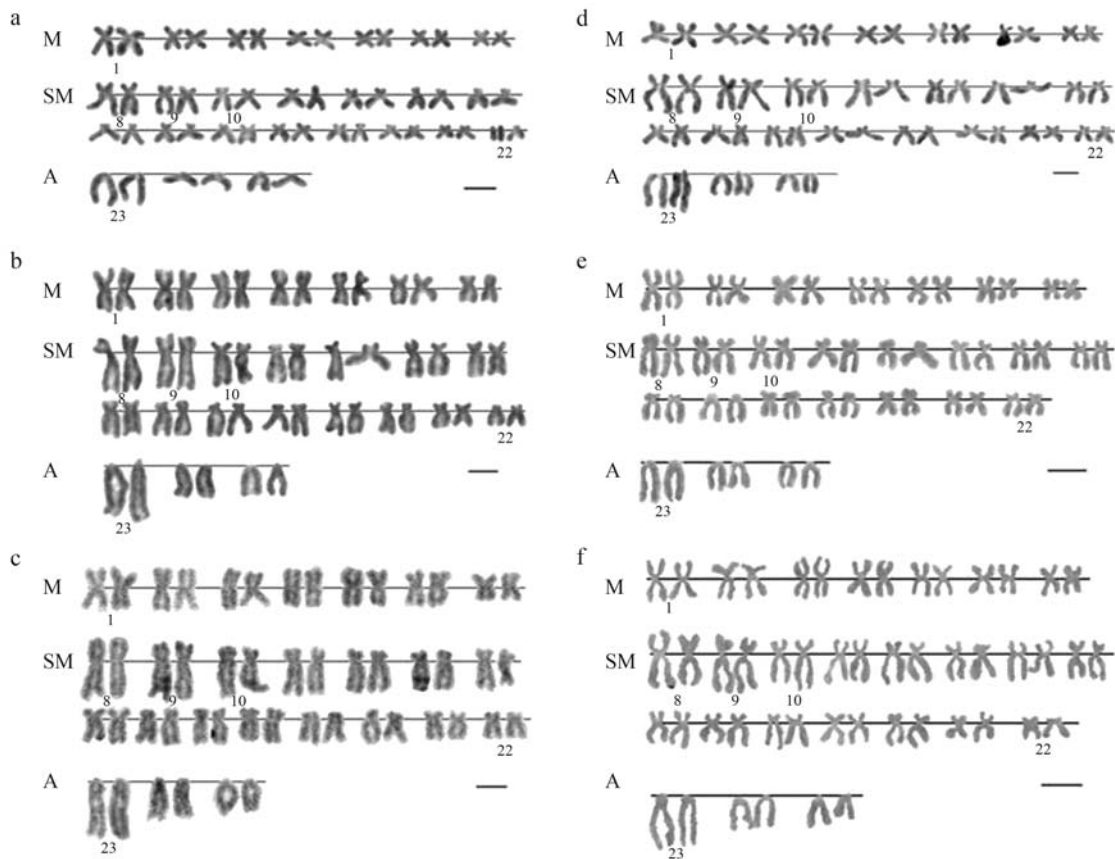 a
M
1
SM
8 9 10
22
A
23
b
M
1
SM
8 9 10
22
A
23
c
M
1
SM
8 9 10
22
A
23
d
M
1
SM
8 9 10
22
A
23
e
M
1
SM
8 9 10
22
A
23
f
M
1
SM
8 9 10
22
A
23